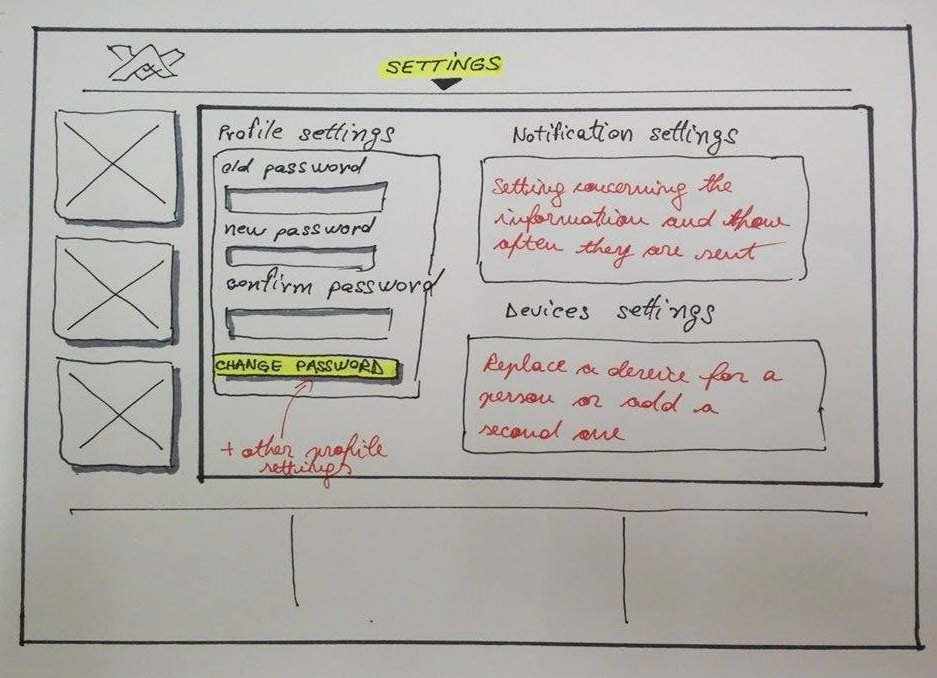 SETTINGS
Profile settings
old password
new password
confirm password
CHANGE PASSWORD
+ other profile
settings
Notification settings
Setting concerning the
information and
often they are sent
Devices settings
Replace a device for a
person or add a
second one